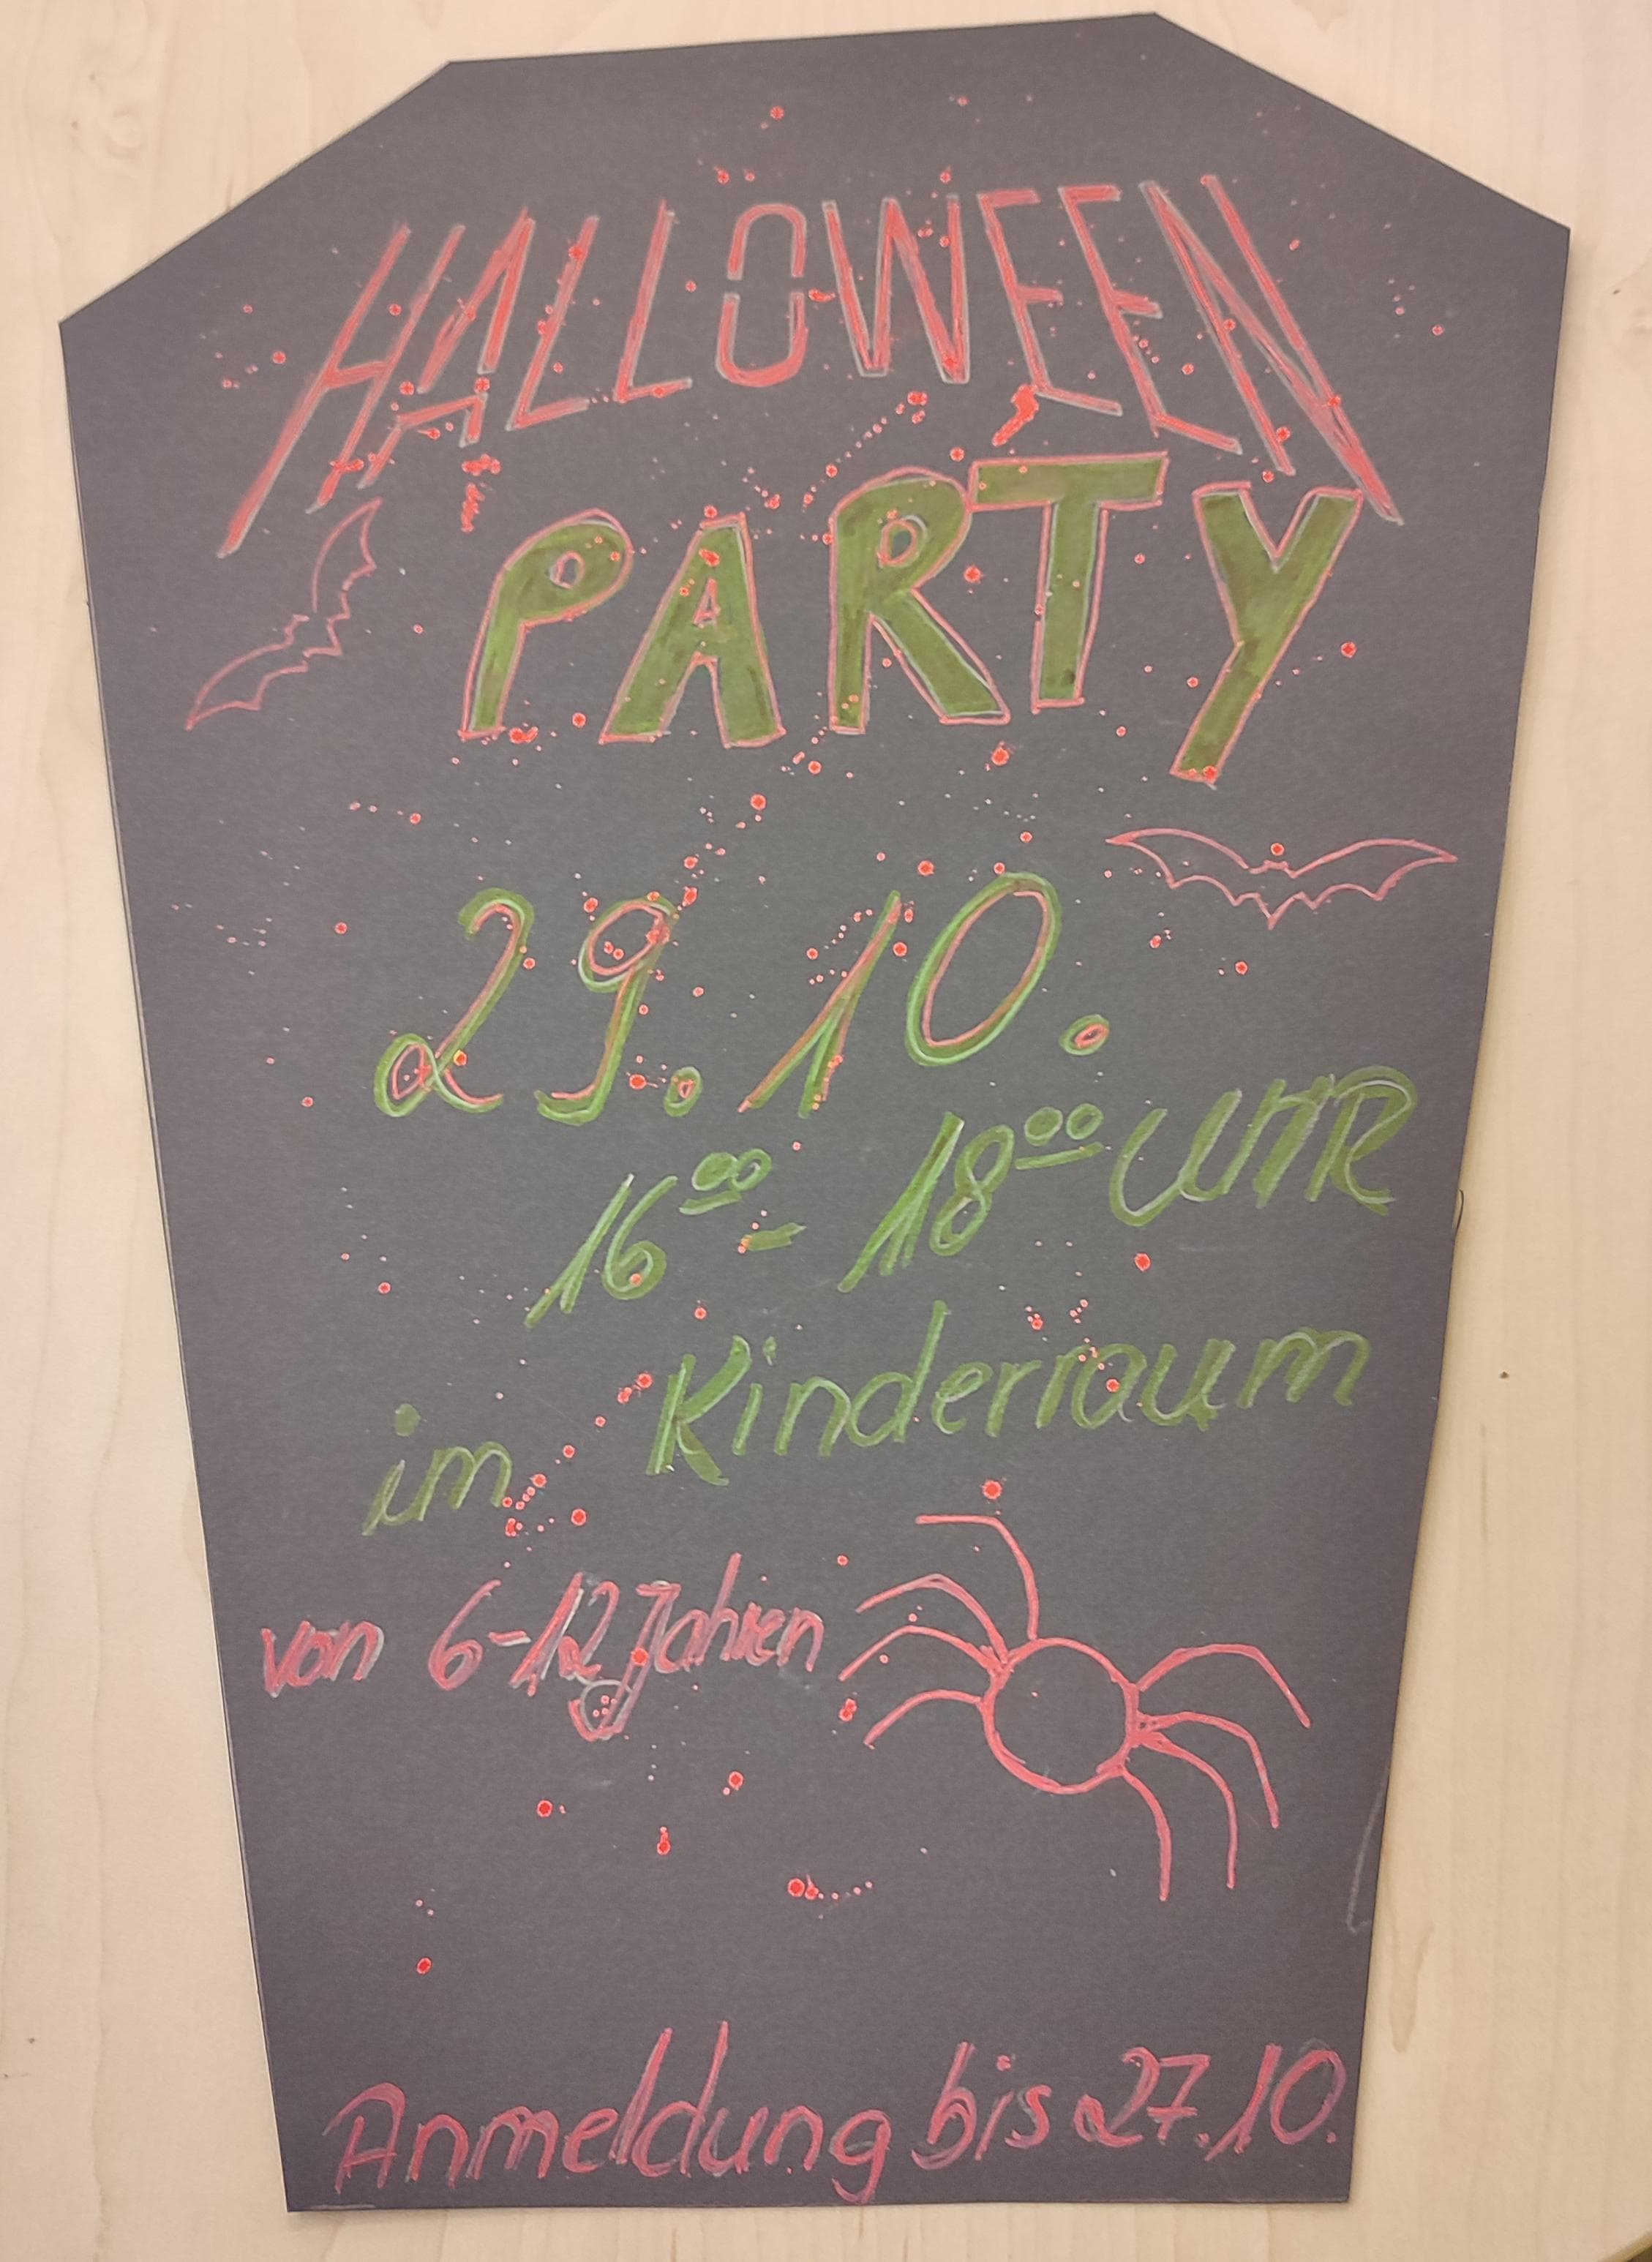 HALLOWEEN
PARTY
29.10.
16⁰⁰ - 18⁰⁰ UHR
im Kinderraum
von 6-12 Jahren
Anmeldung bis 27.10.